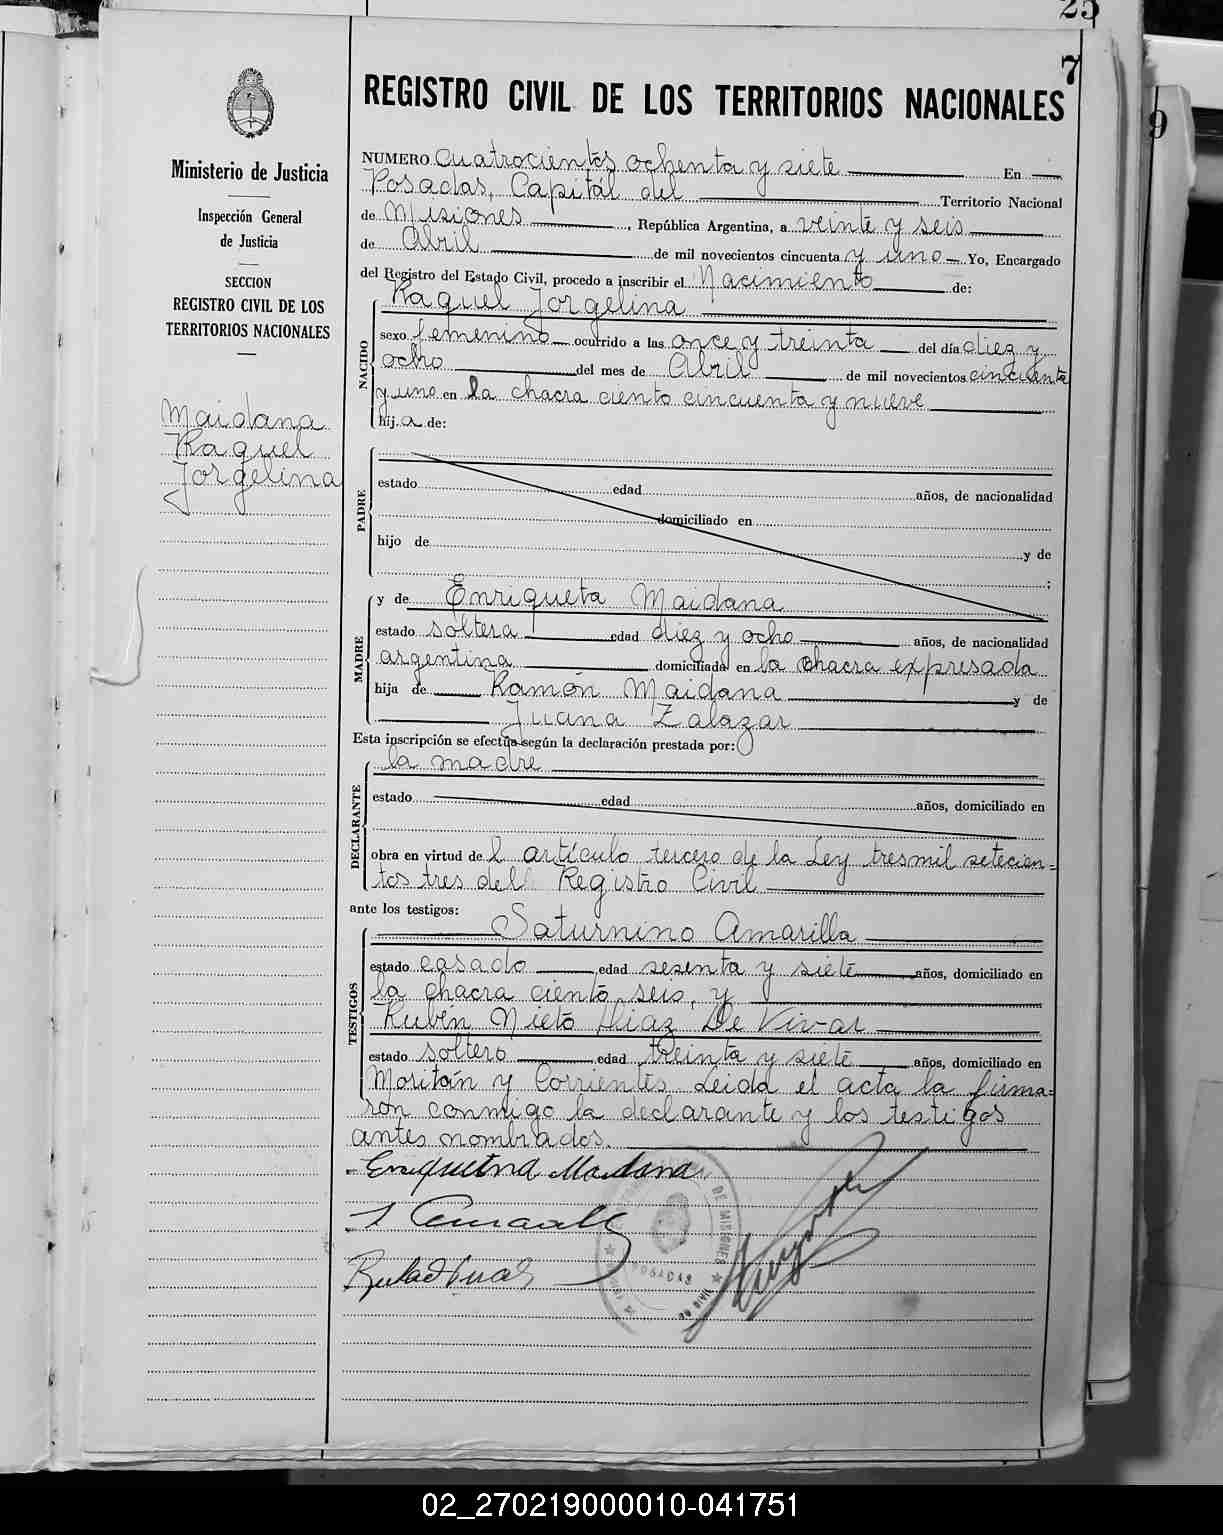 25
7
9
REGISTRO CIVIL DE LOS TERRITORIOS NACIONALES
Ministerio de Justicia
Inspección General
de Justicia
SECCION
REGISTRO CIVIL DE LOS
TERRITORIOS NACIONALES
Maidana
Raquel
Jorgelina
NUMERO cuatrocientos ochenta y siete En
Posadas, Capitál del Territorio Nacional
de Misiones, República Argentina, a veinte y seis
de Abril de mil novecientos cincuenta y uno Yo, Encargado
del Registro del Estado Civil, procedo a inscribir el Nacimiento de:
NACIDO
Raquel Jorgelina
sexo femenino ocurrido a las once y treinta del día diez y
ocho del mes de Abril de mil novecientos cincuenta
y uno en la chacra ciento cincuenta y nueve
hij a de:
PADRE
estado edad años, de nacionalidad
domiciliado en
hijo de y de
;
MADRE
y de Enriqueta Maidana
estado soltera edad diez y ocho años, de nacionalidad
argentina domiciliada en la chacra expresada
hija de Ramón Maidana y de
Juana Zalazar
Esta inscripción se efectúa según la declaración prestada por:
DECLARANTE
la madre
estado edad años, domiciliado en
obra en virtud de l artículo tercero de la Ley tresmil setecien=
tos tres del Registro Civil
ante los testigos:
TESTIGOS
Saturnino Amarilla
estado casado edad sesenta y siete años, domiciliado en
la chacra ciento seis, y
Rubén Nieto Diaz De Vivar
estado soltero edad treinta y siete años, domiciliado en
Moritán y Corrientes. Leida el acta la firma=
ron conmigo la declarante y los testigos
antes nombrados.
Enriquetna Maidana
DE MISIONES
POSADAS
02_270219000010-041751